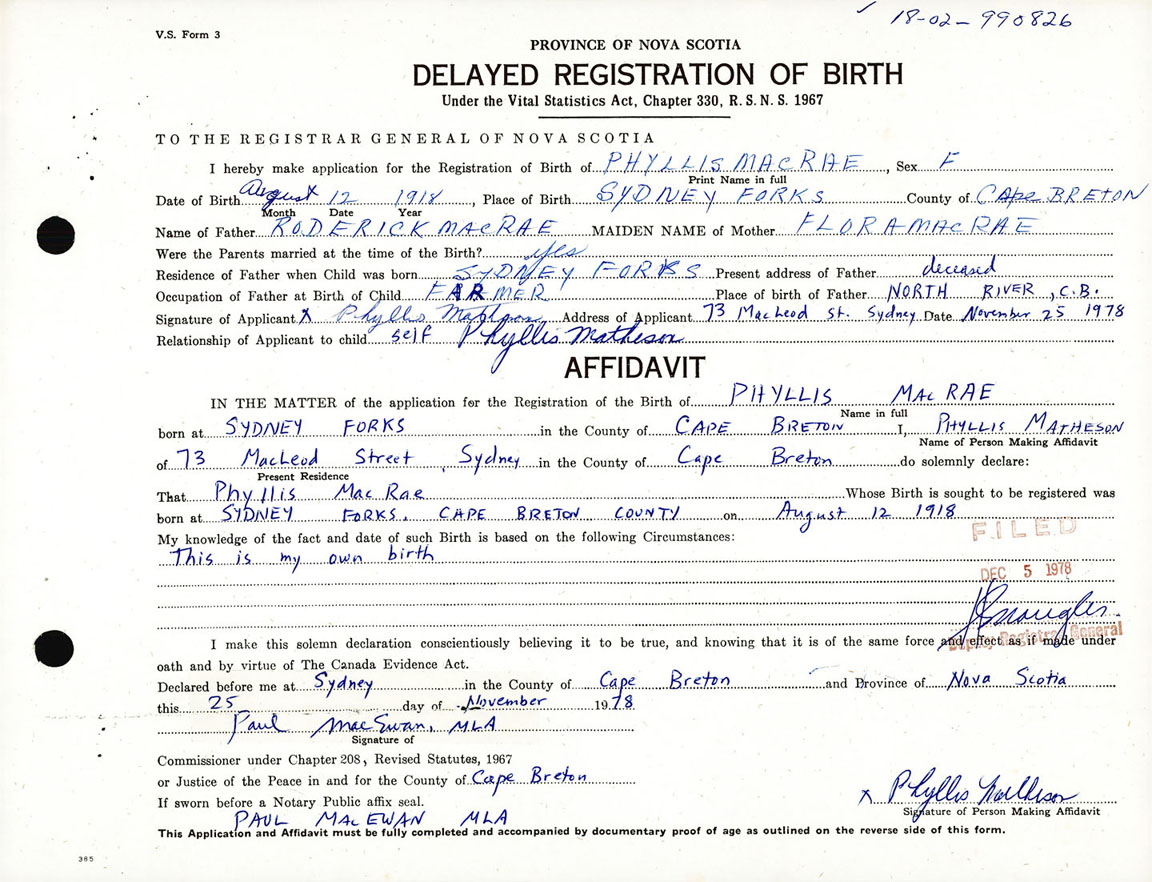 ✓ 18-02-990826
V.S. Form 3
PROVINCE OF NOVA SCOTIA
DELAYED REGISTRATION OF BIRTH
Under the Vital Statistics Act, Chapter 330, R.S.N.S. 1967
TO THE REGISTRAR GENERAL OF NOVA SCOTIA
I hereby make application for the Registration of Birth of PHYLLIS MACRAE, Sex F
Print Name in full
Date of Birth August 12 1918, Place of Birth SYDNEY FORKS County of CApe BRETON
Month Date Year
Name of Father RODERICK MACRAE MAIDEN NAME of Mother FLORA MACRAE
Were the Parents married at the time of the Birth? yes
Residence of Father when Child was born SYDNEY FORKS Present address of Father deceased
Occupation of Father at Birth of Child FARMER Place of birth of Father NORTH RIVER, C.B.
Signature of Applicant X Phyllis Address of Applicant 73 MacLeod St. Sydney Date November 25 1978
Relationship of Applicant to child self Phyllis Matheson
AFFIDAVIT
IN THE MATTER of the application for the Registration of the Birth of PHYLLIS MAC RAE
Name in full
born at SYDNEY FORKS in the County of CAPE BRETON I, PHYLLIS MATHESON
Name of Person Making Affidavit
of 73 MacLeod Street, Sydney in the County of Cape Breton do solemnly declare:
Present Residence
That Phyllis Mac Rae Whose Birth is sought to be registered was
born at SYDNEY FORKS, CAPE BRETON COUNTY on August 12 1918
FILED
My knowledge of the fact and date of such Birth is based on the following Circumstances:
This is my own birth
DEC 5 1978
I make this solemn declaration conscientiously believing it to be true, and knowing that it is of the same force and effect as if made under
Deputy Registrar General
oath and by virtue of The Canada Evidence Act.
Declared before me at Sydney in the County of Cape Breton and Province of Nova Scotia
this 25 day of November 1978
Paul MacEwan, MLA
Signature of
Commissioner under Chapter 208, Revised Statutes, 1967
or Justice of the Peace in and for the County of Cape Breton
x Phyllis Matheson
If sworn before a Notary Public affix seal.
Signature of Person Making Affidavit
PAUL MACEWAN MLA
This Application and Affidavit must be fully completed and accompanied by documentary proof of age as outlined on the reverse side of this form.
385